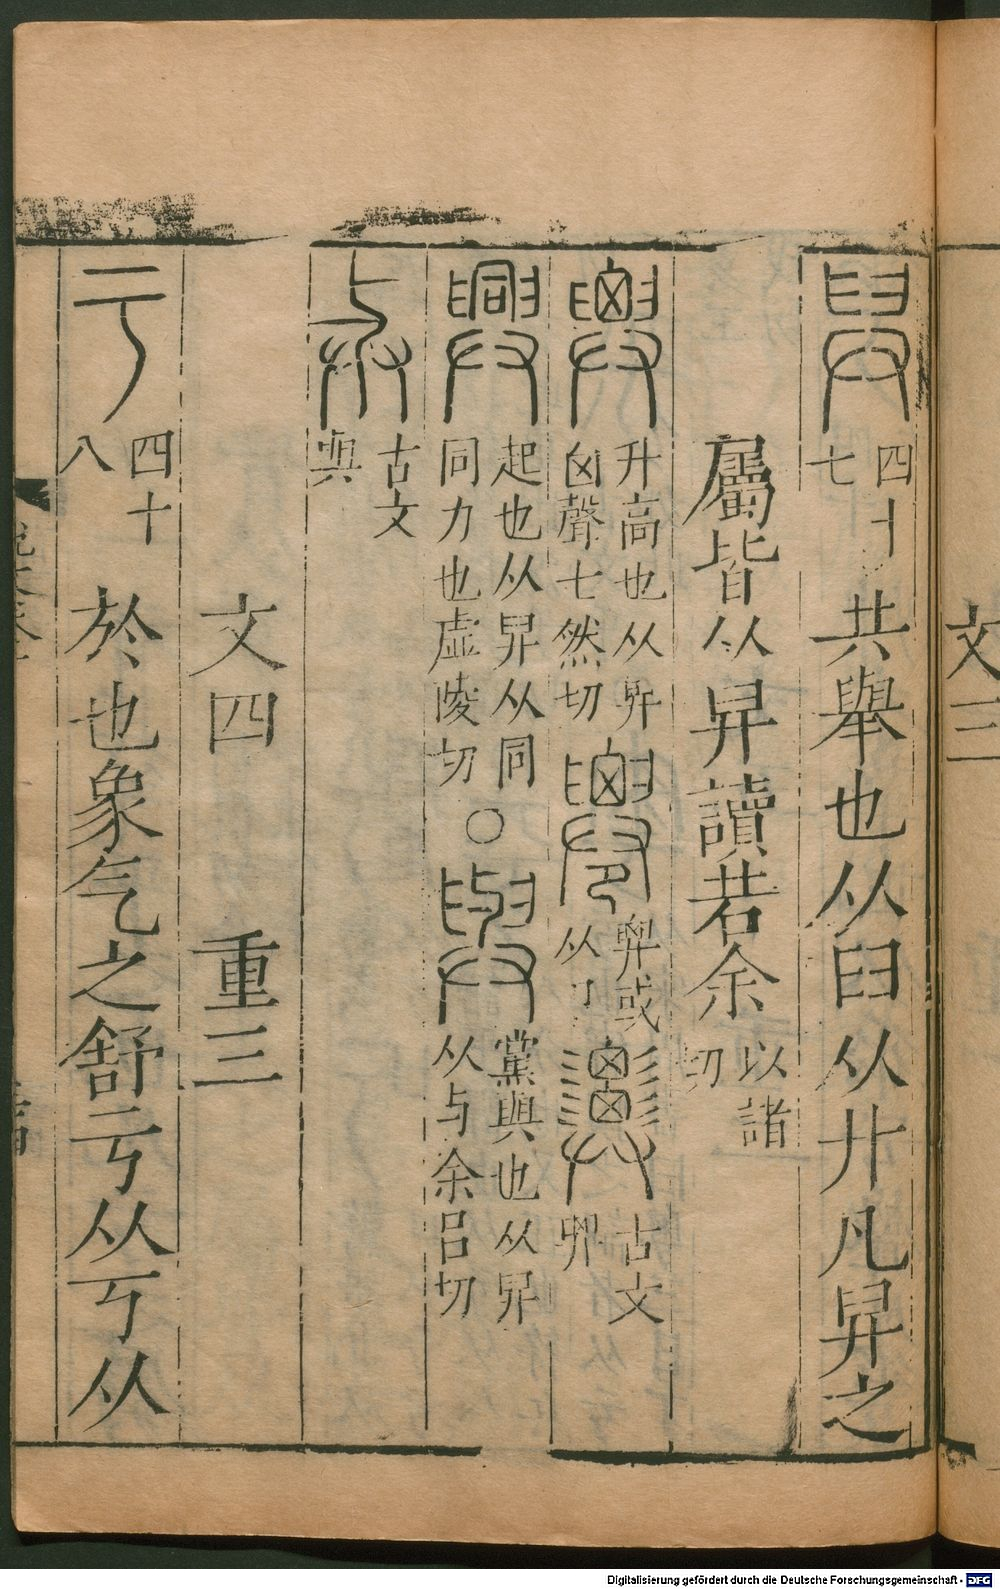 文三
舁 四十七 共舉也从臼从廾凡舁之
屬皆从舁讀若余 以諸切
䙴 升高也从舁囟聲七然切 䙴或从卩 古文䙴
興 起也从舁从同同力也虛陵切 ○ 與 黨與也从舁从与余呂切
古文與
文四 重三
亏 四十八 於也象气之舒亏从丂从
Digitalisierung gefördert durch die Deutsche Forschungsgemeinschaft - DFG